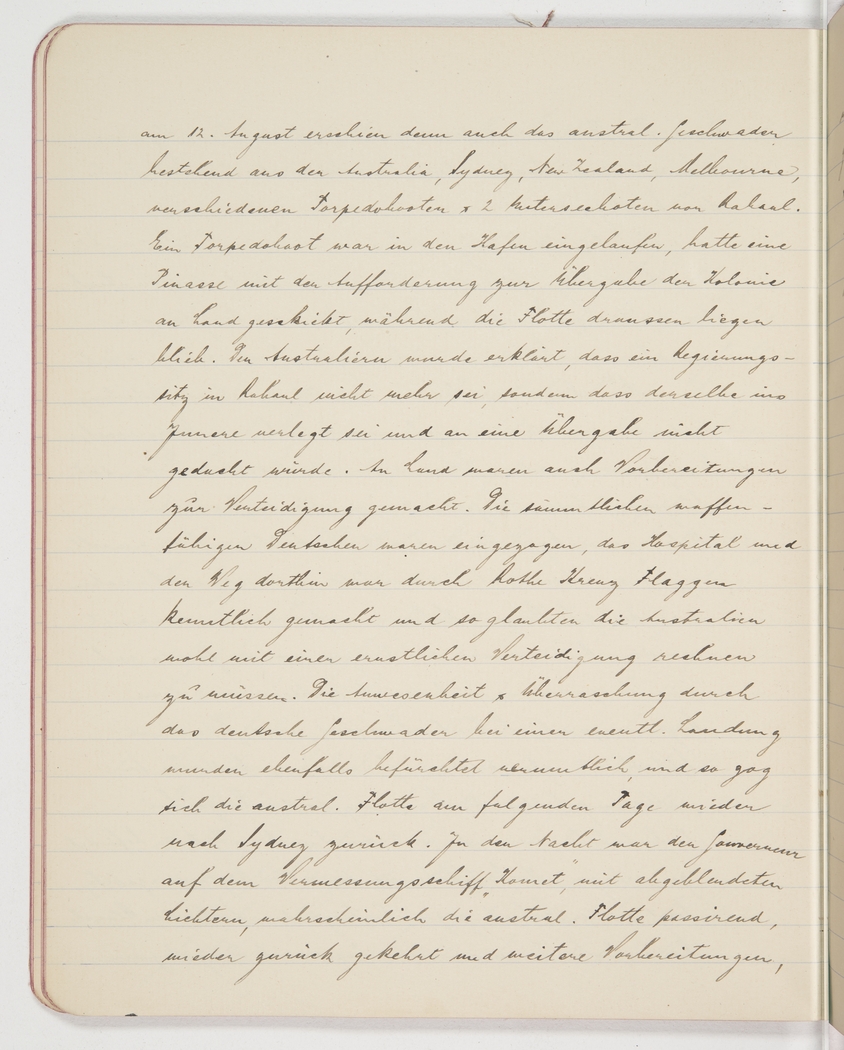 am 12. August erschien denn auch das austral. Geschwader
bestehend aus der Australia, Sydney, New Zealand, Melbourne,
verschiedenen Torpedobooten & 2 Unterseeboten vor Rabaul.
Ein Torpedoboot war in den Hafen eingelaufen, hatte eine
Pinasse mit der Aufforderung zur Übergabe der Kolonie
an Land geschickt, während die Flotte draussen liegen
blieb. Den Australiern wurde erklärt, dass ein Regierungs-
sitz in Rabaul nicht mehr sei, sondern dass derselbe ins
Innere verlegt sei und an eine Übergabe nicht
gedacht würde. An Land waren auch Vorbereitungen
zur Verteidigung gemacht. Die sämmtlichen waffen-
fähigen Deutschen waren eingezogen, das Hospital und
der Weg dorthin war durch Rothe Kreuz Flaggen
kenntlich gemacht und so glaubten die Australier
wohl mit einer ernstlichen Verteidigung rechnen
zu müssen. Die Anwesenheit & Überraschung durch
das deutsche Geschwader bei einer eventl. Landung
wurden ebenfalls befürchtet vermutlich, und so zog
sich die austral. Flotte am folgenden Tage wieder
nach Sydney zurück. In der Nacht war der Gouverneur
auf dem Vermessungsschiff „Komet“, mit abgeblendeten
Lichtern, wahrscheinlich die austral. Flotte passirend,
wieder zurück gekehrt und weitere Vorbereitungen,